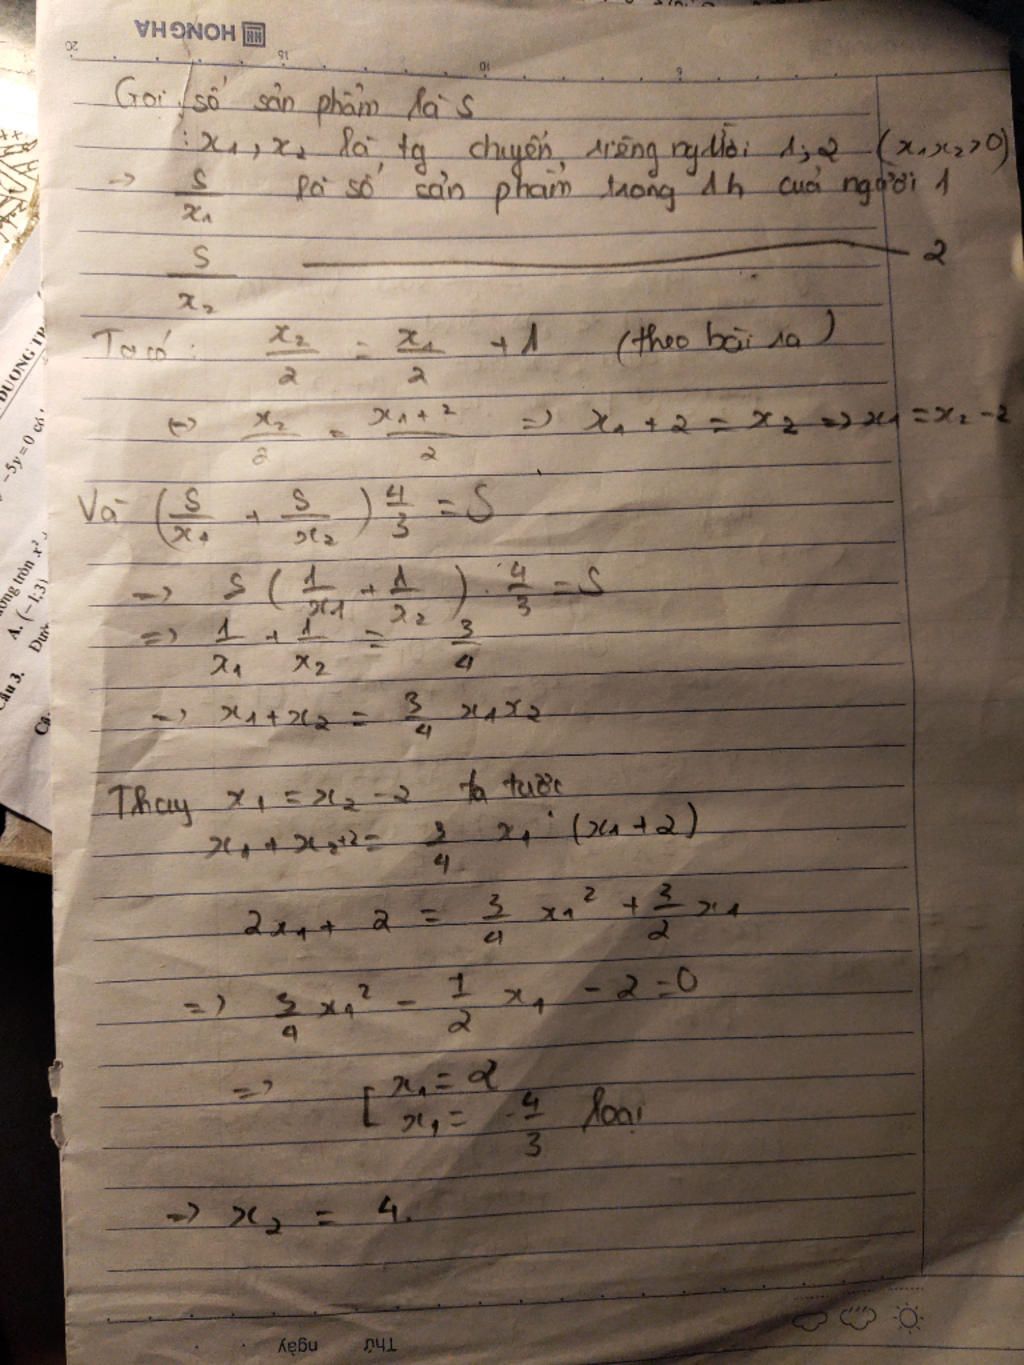 HONG HA
20 15 10 5
Gọi số sản phẩm là S
: x₁, x₂ là tg chuyến, riêng người 1, 2 (x₁x₂>0)
-> S/x₁ là số sản phẩm trong 1h của người 1
S/x₂ ——— 2
Ta có: x₂/2 = x₁/2 + 1 (theo bài ra)
<=> x₂/2 = x₁+2/2 => x₁ + 2 = x₂ => x₁ = x₂ - 2
Và (S/x₁ + S/x₂) 4/3 = S
=> S (1/x₁ + 1/x₂) . 4/3 = S
=> 1/x₁ + 1/x₂ = 3/4
=> x₁ + x₂ = 3/4 x₁x₂
Thay x₁ = x₂ - 2 ta tược
x₁ + x₂+2 = 3/4 x₁ . (x₁ + 2)
2x₁ + 2 = 3/4 x₁² + 3/2 x₁
=> 3/4 x₁² - 1/2 x₁ - 2 = 0
=> [ x₁ = 2
x₁ = -4/3 loại
=> x₂ = 4.
Thứ ngày
DƯƠNG TR
-5y=0 có
ường tròn x²
A. (-1;3)
Câu 3.